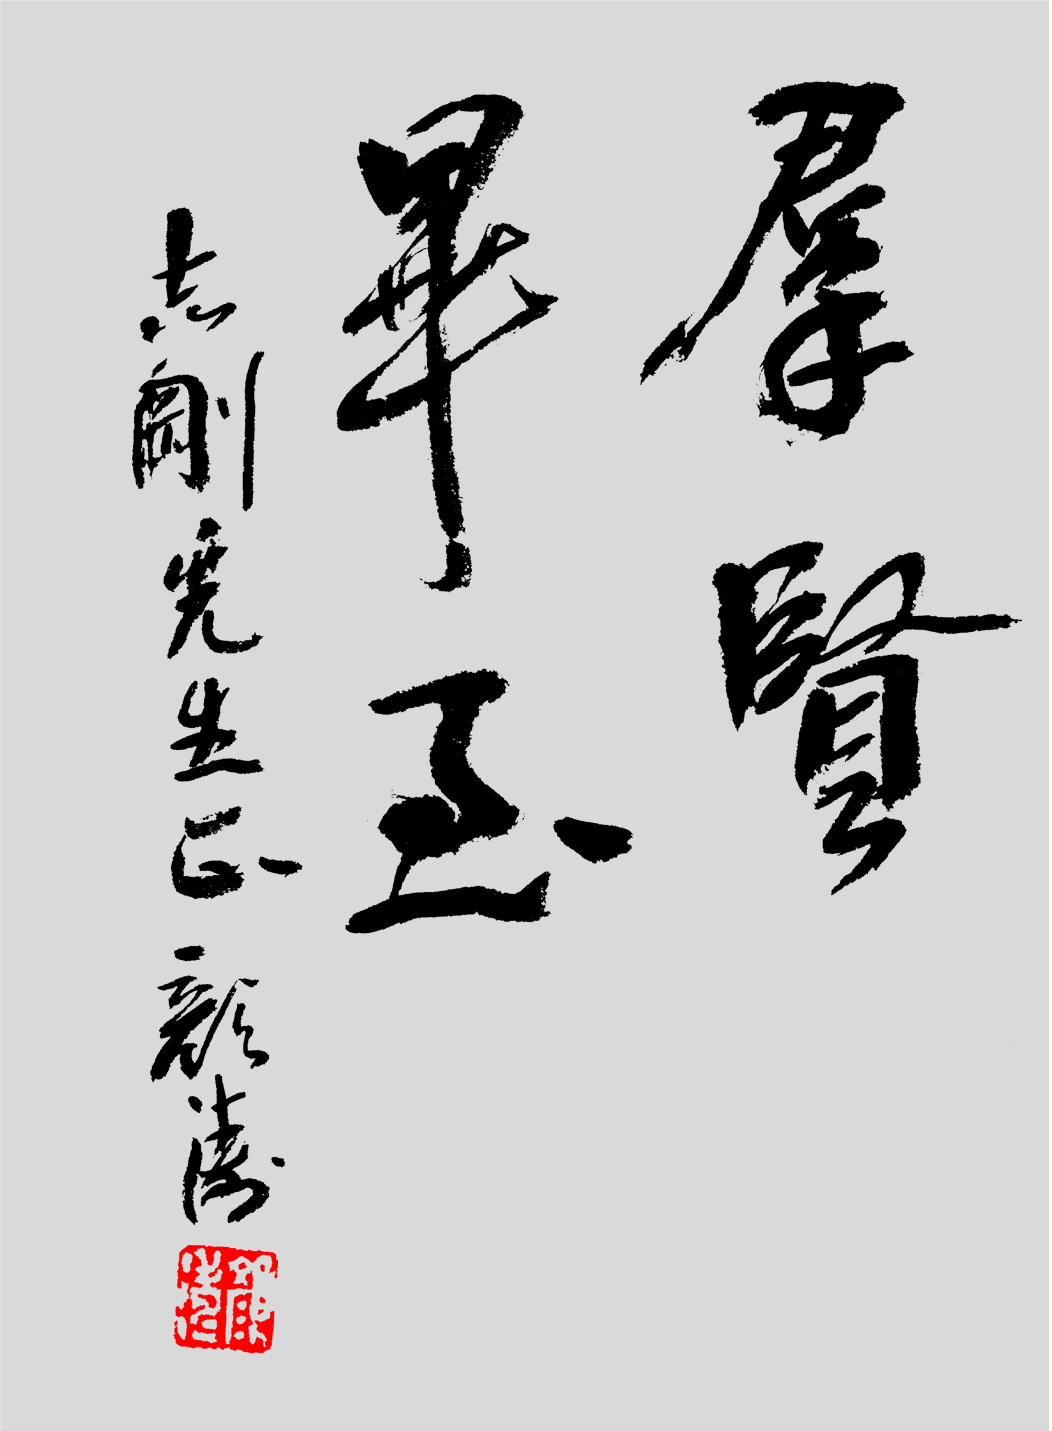 羣賢
畢至
志剛先生正 顏濤